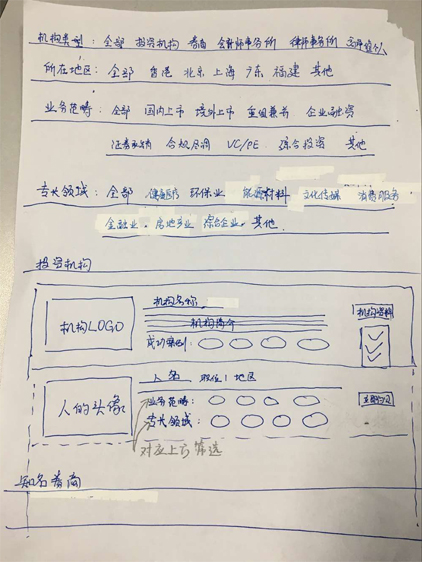 机构类型：全部 投资机构 券商 会计师事务所 律师事务所
所在地区：全部 香港 北京 上海 广东 福建 其他
业务范畴：全部 国内上市 境外上市 重组兼并 企业融资
合规风调 VC/PE 综合投资 其他
专长领域：全部 保健医疗 环保业 能源材料 文化传媒 消费及服务
金融业 房地产业 综合企业 其他
投资机构
机构LOGO
机构名称
机构简介
成功案例：
机构资料
人的头像
人名 职位 | 地区
业务范畴：
专长领域：
对应上方筛选
知名券商